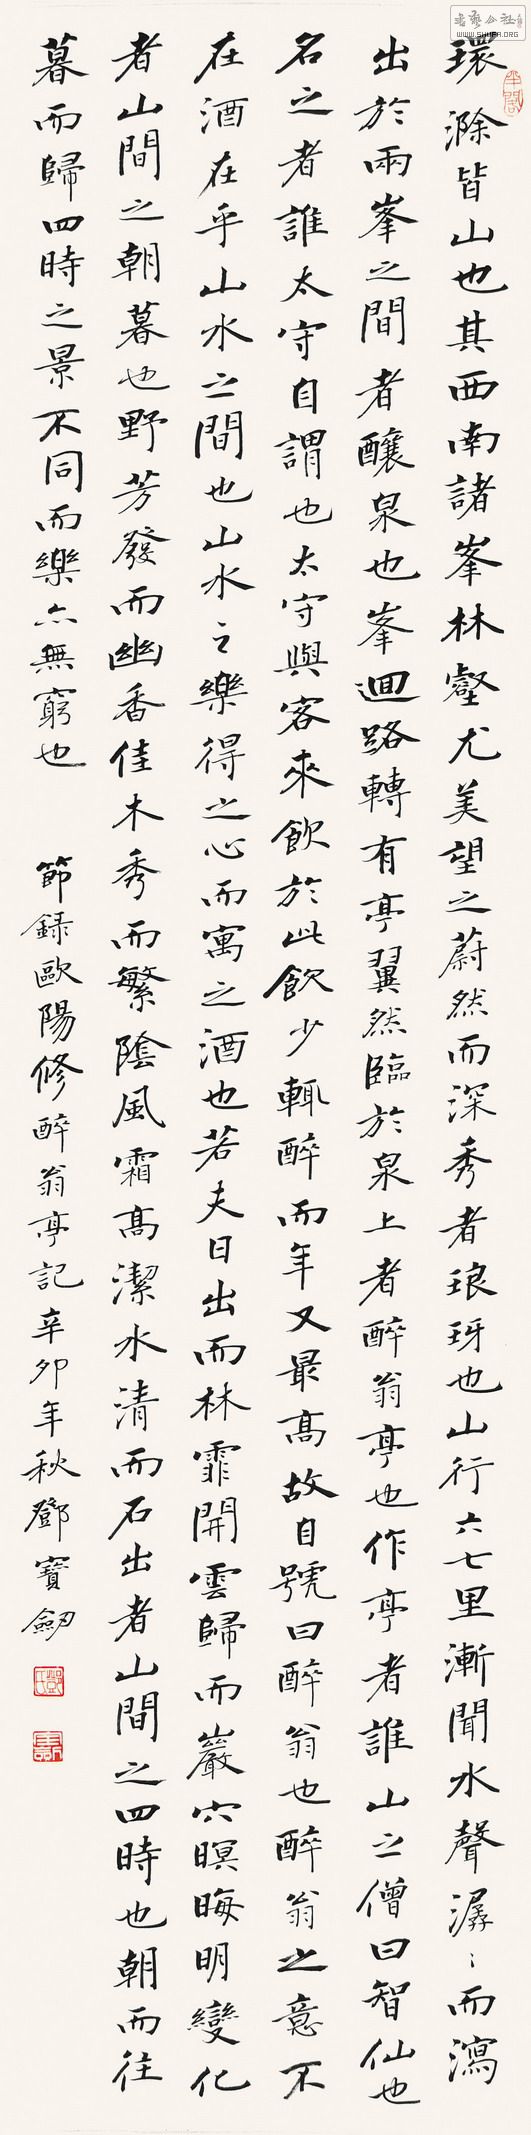 書藝公社
WWW.SHUFA.ORG
環滁皆山也其西南諸峯林壑尤美望之蔚然而深秀者琅玡也山行六七里漸聞水聲潺〻而瀉
出於兩峯之間者釀泉也峯迴路轉有亭翼然臨於泉上者醉翁亭也作亭者誰山之僧曰智仙也
名之者誰太守自謂也太守與客來飲於此飲少輒醉而年又最高故自號曰醉翁也醉翁之意不
在酒在乎山水之間也山水之樂得之心而寓之酒也若夫日出而林霏開雲歸而巖穴暝晦明變化
者山間之朝暮也野芳發而幽香佳木秀而繁陰風霜高潔水清而石出者山間之四時也朝而往
暮而歸四時之景不同而樂亦無窮也 節録歐陽修醉翁亭記辛卯年秋鄧寶劍